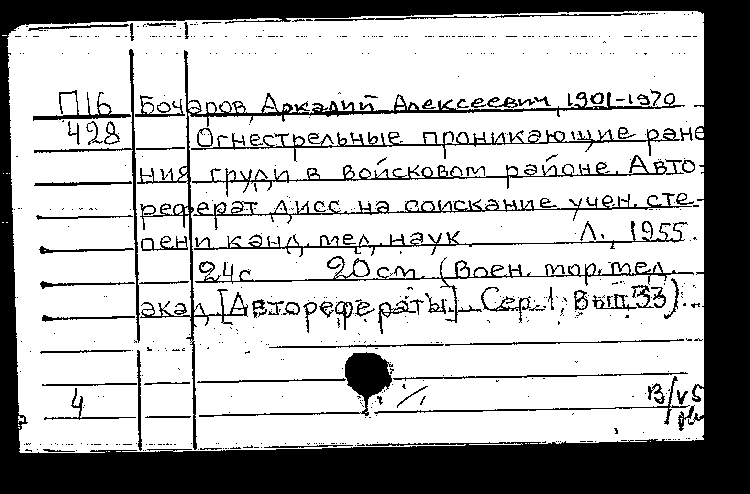 П16 Бочаров, Аркадий Алексеевич, 1901-1970
428 Огнестрельные проникающие ране
ния груди в войсковом районе. Авто-
реферат дисс. на соискание учен. сте-
пени канд. мед. наук. Л., 1955.
24с 20см. (Воен. мор. мед.
акад. [Авторефераты]. Сер. 1, Вып. 33).
4